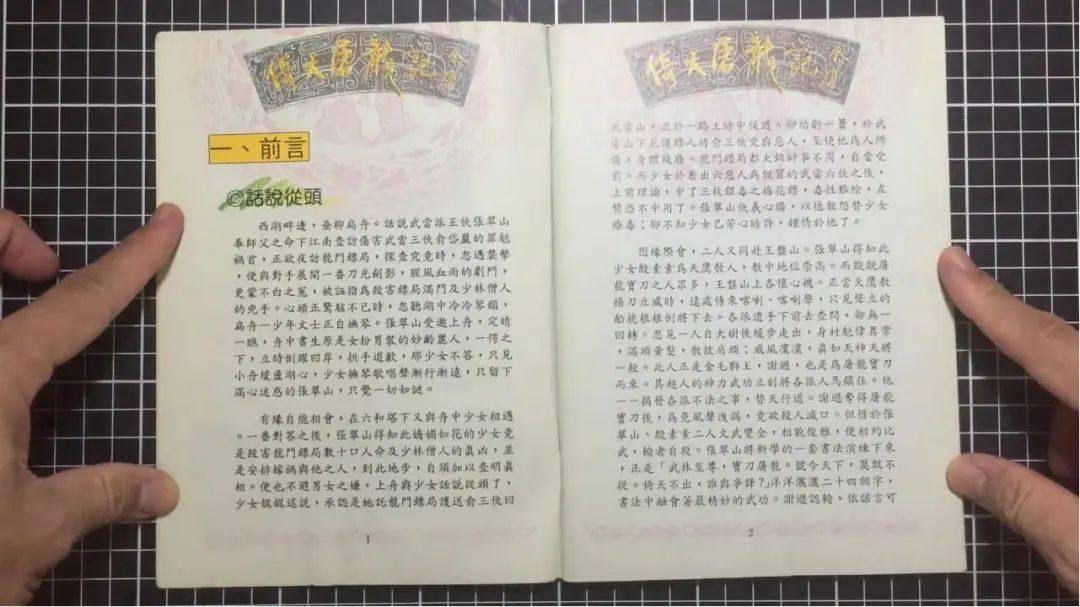 倚天屠龍記
一、前言
◎話說從頭
西湖畔邊,垂柳扁舟。話說武當派五俠張翠山
奉師父之命下江南查訪傷害武當三俠俞岱巖的罪魁
禍首,正欲夜訪龍門鏢局,探查究竟時,忽遇襲擊
,便與對手展開一番刀光劍影,腥風血雨的劇鬥,
更蒙不白之冤,被誣指為殺害鏢局滿門及少林僧人
的兇手。心頭正驚駭不已時,忽聽湖中泠泠琴韻,
扁舟一少年文士正自撫琴。張翠山受邀上舟,定睛
一瞧,舟中書生原是女扮男裝的妙齡麗人,一愕之
下,立時倒躍回岸,拱手道歉,那少女不答,只見
小舟緩盪湖心,少女撫琴歌唱聲漸行漸遠,只留下
滿心迷惑的張翠山,只覺一切如謎。
有緣自能相會,在六和塔下又與舟中少女相遇
。一番對答之後,張翠山得知此嬌媚如花的少女竟
是殺害龍門鏢局數十口人命及少林僧人的真凶,並
是安排嫁禍與他之人,到此地步,自須加以查明真
相。便也不避男女之嫌,上舟與少女話說從頭了,
少女娓娓述說,承認是她託龍門鏢局護送俞三俠回
1
倚天屠龍記
武當山,並於一路上暗中保護。卻功虧一簣,於武
當山下見護鏢人將俞三俠交與惡人,至使他為人所
傷,身體殘廢。龍門鏢局都大錦辦事不周,自當受
罰。而少女於看出六惡人為假冒的武當六俠之後,
上前理論,中了三枚餵毒之梅花鏢,毒性難除,左
臂恐不中用了。張翠山俠義心腸,以德報怨替少女
療毒;卻不知少女已芳心暗許,鍾情於他了。
因緣際會,二人又同赴王盤山。張翠山得知此
少女殷素素為天鷹教人,教中地位崇高。而覬覦屠
龍寶刀之人眾多,王盤山上各懷心機。正當天鷹教
揚刀立威時,遠處傳來喀喇、喀喇聲,只見聳立的
船桅根根倒將下去。各派遣手下前去查問,卻無一
回轉。忽見一人自大樹後緩步走出,身材魁偉異常
,滿頭黃髮,散披肩頭;威風凜凜,真如天神天將
一般。此人正是金毛獅王,謝遜,也是為屠龍寶刀
而來。其超人的神力武功立刻將各派人馬鎮住。他
一一揭發各派不法之事,替天行道。謝遜奪得屠龍
寶刀後,為免風聲洩漏,竟欲殺人滅口。但惜於張
翠山、殷素素二人文武雙全,相貌俊雅,便相約比
武,輸者自殺。張翠山將新學的一套書法演練下來
,正是「武林至尊,寶刀屠龍。號令天下,莫敢不
從。倚天不出,誰與爭鋒?」洋洋灑灑二十四個字,
書法中融會著最精妙的武功。謝遜認輸,依諾言可
2